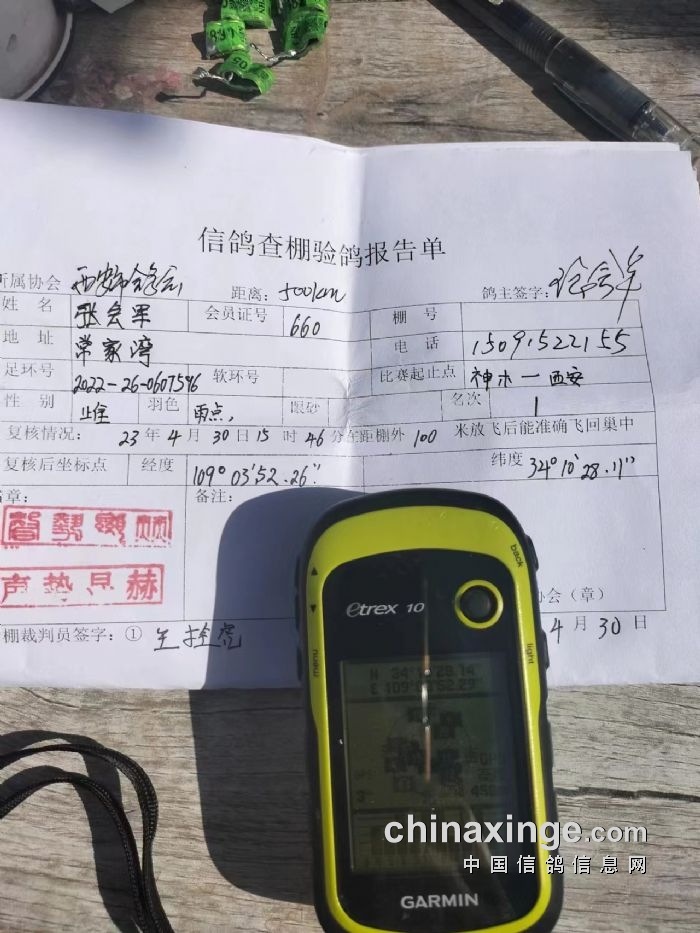 信鸽查棚验鸽报告单
所属协会 距离：500km 鸽主签字：
姓名 张会军 会员证号 660 棚号
地址 常家湾 电话 15091522155
足环号 2022-26-0607596 软环号 比赛起止点 神木一西安
性别 雄 羽色 雨点， 眼砂 名次 1
复核情况： 23年4月30日15时46分在距棚外100米放飞后能准确飞回巢中
复核后坐标点 经度 109°03'52.26" 纬度 34°10'28.11"
备注：
声势显赫
协会（章）
棚裁判员签字：① 4月30日
back
etrex 10
menu
light
chinaxinge.com
中国信鸽信息网
GARMIN